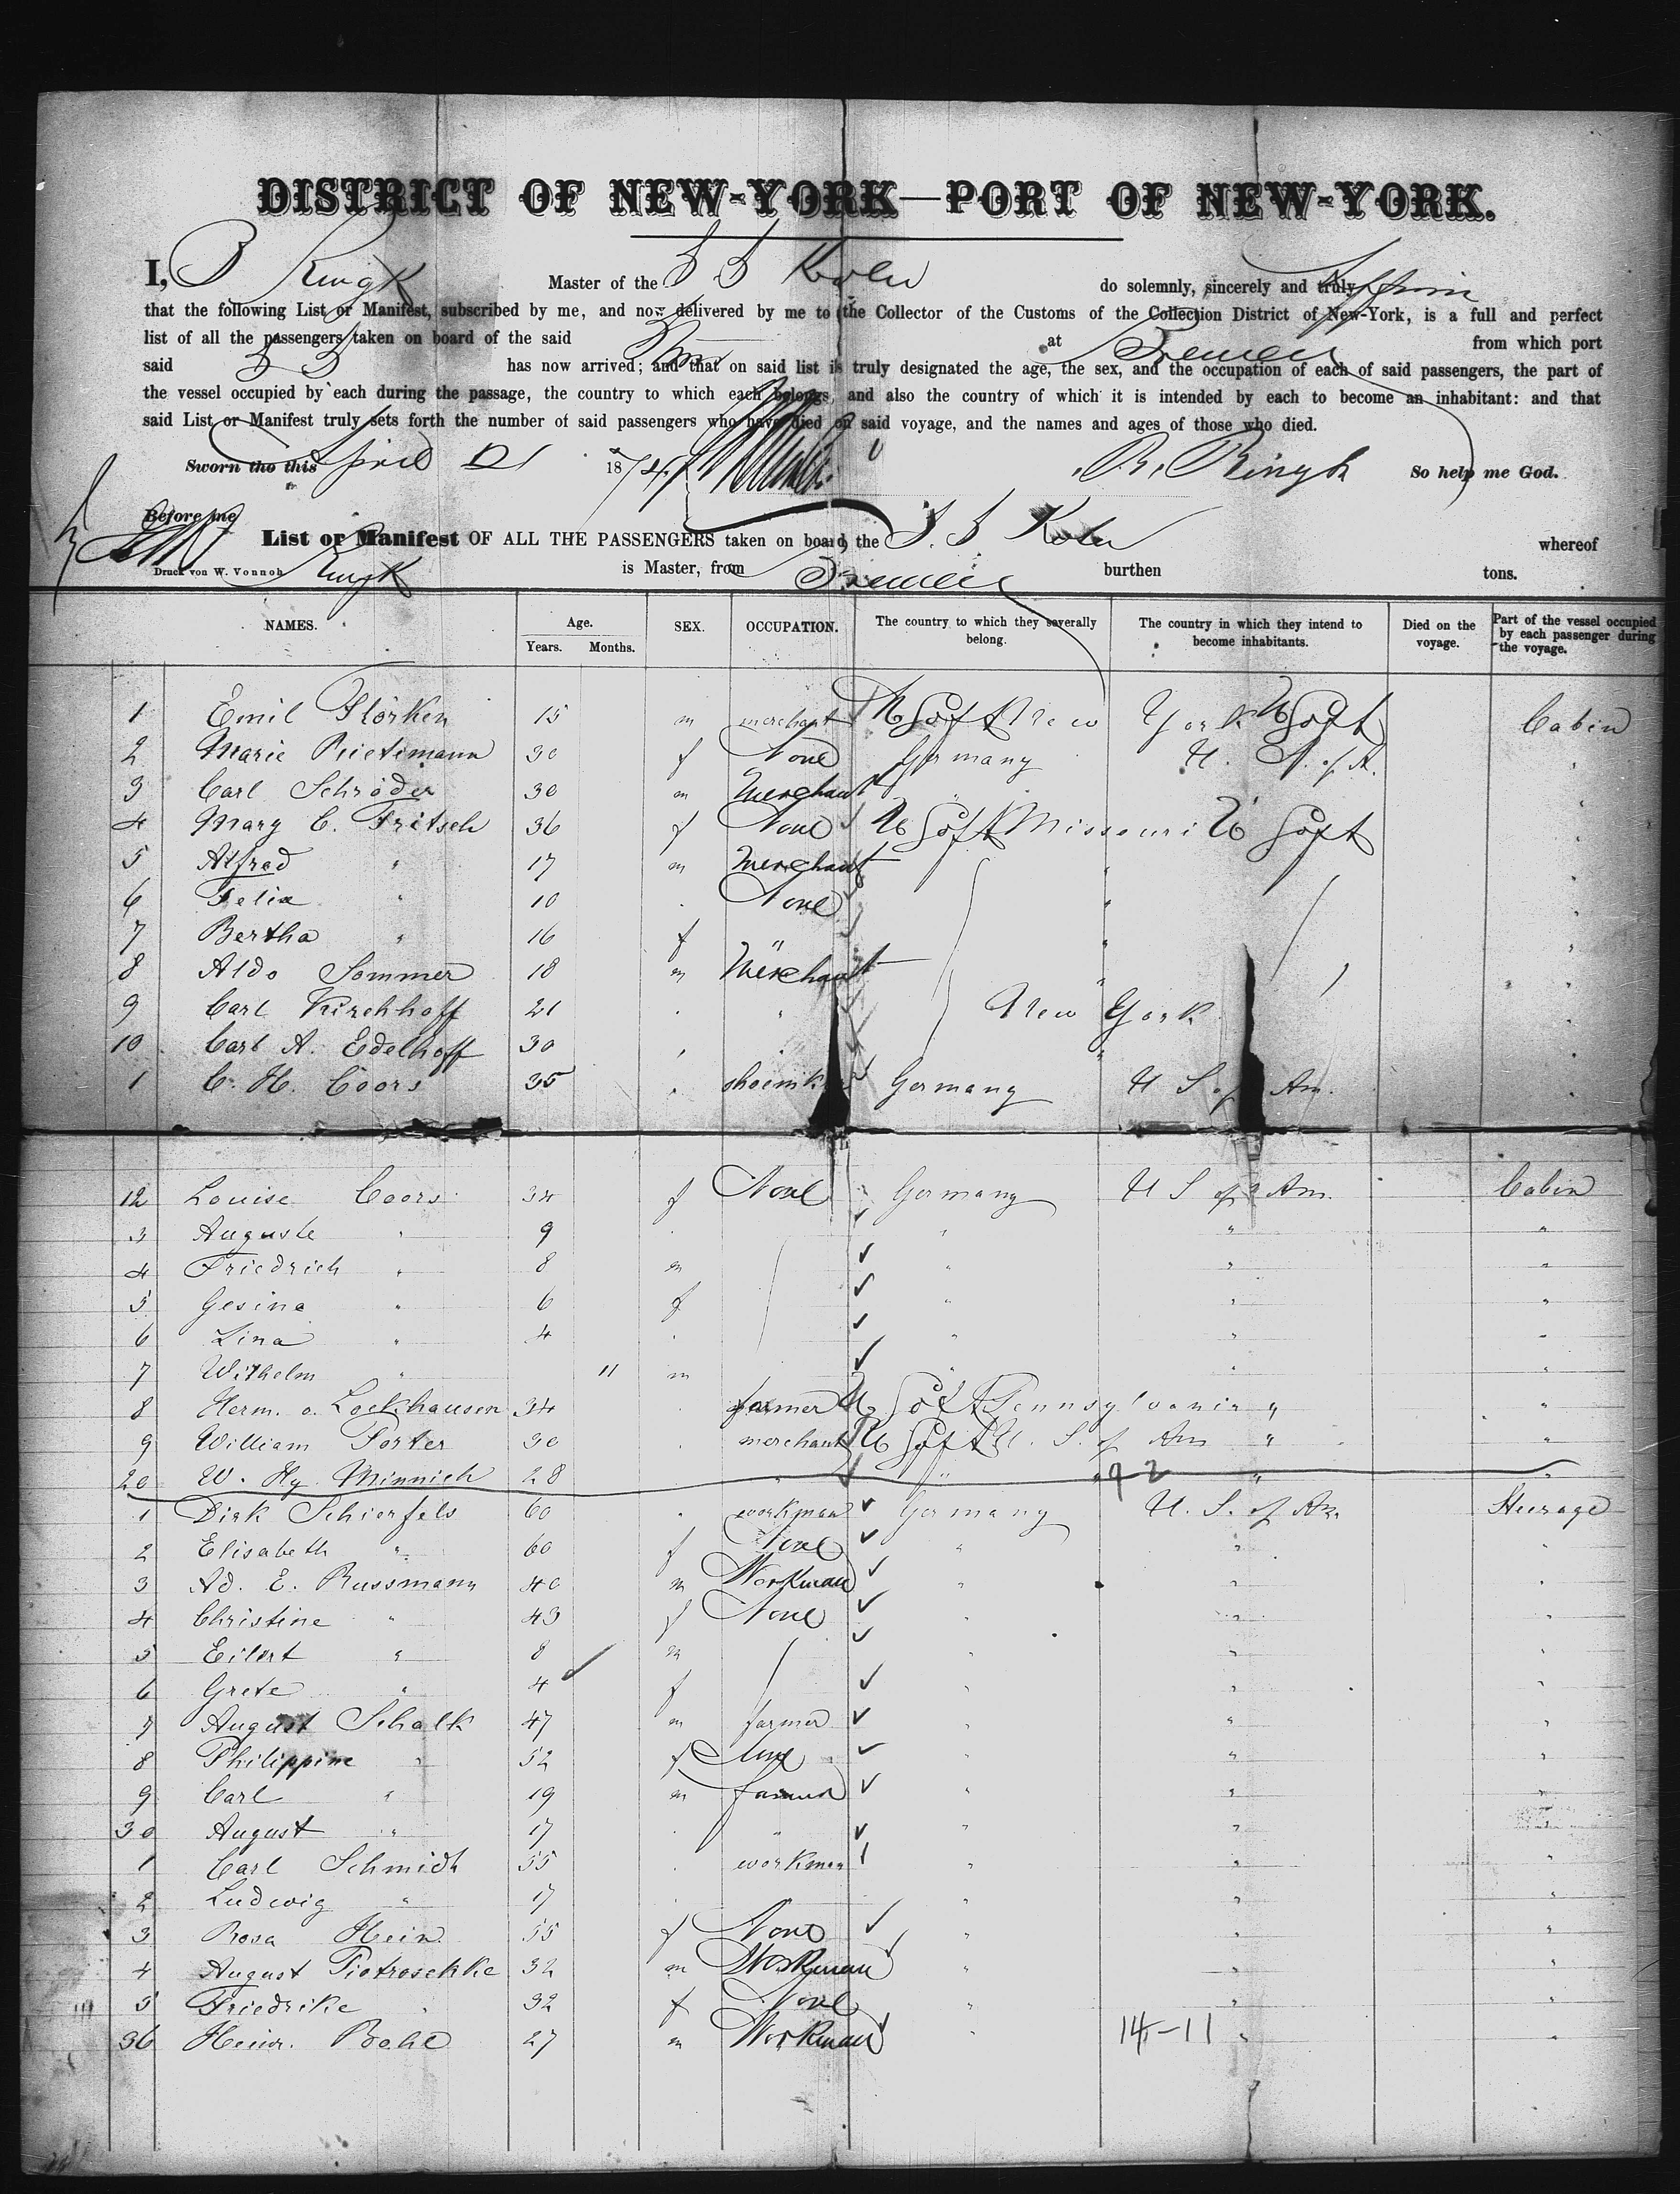 DISTRICT OF NEW-YORK—PORT OF NEW-YORK.
I, B Ringk Master of the S S Koln do solemnly, sincerely and truly affirm
that the following List or Manifest, subscribed by me, and now delivered by me to the Collector of the Customs of the Collection District of New-York, is a full and perfect
list of all the passengers taken on board of the said at Bremen from which port
said S S has now arrived; and that on said list is truly designated the age, the sex, and the occupation of each of said passengers, the part of
the vessel occupied by each during the passage, the country to which each belongs, and also the country of which it is intended by each to become an inhabitant: and that
said List or Manifest truly sets forth the number of said passengers who have died on said voyage, and the names and ages of those who died.
Sworn tho this April 21 1874 B. Ringk So help me God.
Before me
List or Manifest OF ALL THE PASSENGERS taken on board, the S. S Koln whereof
Druck von W. Vonnoh Ringk is Master, from Bremen burthen tons.
NAMES. Age. Years. Months. SEX. OCCUPATION. The country to which they severally belong. The country in which they intend to become inhabitants. Died on the voyage. Part of the vessel occupied by each passenger during the voyage.
1 Emil Flörken 15 m merchant U S of A New York U S of A Cabin
2 Marie Rietimann 30 f None Germany U. S. of A. "
3 Carl Schröder 30 m Merchant " "
4 Mary C. Fritsch 36 f None U S of A Missouri U S of A "
5 Alfred " 17 m Merchant " "
6 Felix " 10 " None " "
7 Bertha " 16 f " " "
8 Aldo Sommer 18 m Merchant " "
9 Carl Kirchhoff 21 " " New York "
10 Carl A. Edelhoff 30 " " "
1 C. H. Coors 35 " shoemk Germany U S of Am. "
12 Louise Coors 34 f None Germany U S of Am. Cabin
3 Auguste " 9 " " " "
4 Friedrich " 8 m " " "
5 Gesina " 6 f " " "
6 Lina " 4 " " " "
7 Wilhelm " 11 m " " "
8 Herm. v. Lockhausen 34 " farmer U S of A Pennsylvania " "
9 William Porter 30 " merchant U S of A U. S. of Am " "
20 W. Hy Minnich 28 " " " 92 " "
1 Dirk Schierfels 60 " workman Germany U. S. of Am. Steerage
2 Elisabeth " 60 f None " " "
3 Ad. E. Russmann 40 m Workman " " "
4 Christine " 43 f None " " "
5 Eilert " 8 m " " "
6 Grete " 4 f " " "
7 August Schalk 47 m farmer " " "
8 Philippine " 52 f None " " "
9 Carl " 19 m farmer " " "
30 August " 17 " " " " "
1 Carl Schmidt 55 " workman " " "
2 Ludwig " 17 " " " "
3 Rosa Hein 55 f None " " "
4 August Piotroschke 32 m Workman " " "
5 Friedrike " 32 f None " " "
36 Heinr. Boehl 27 m Workman " 14-11 " "